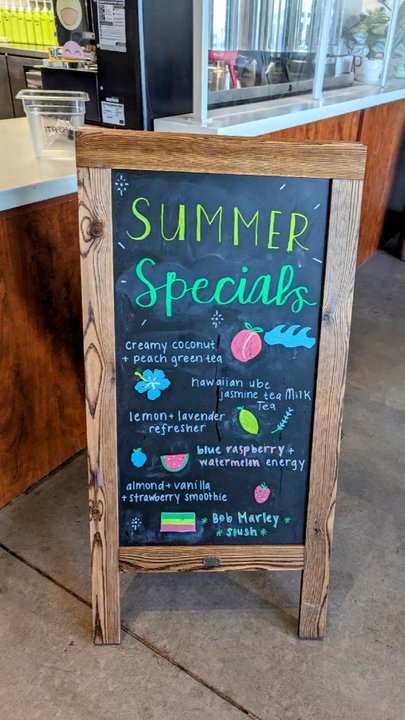 SUMMER
Specials
creamy coconut
+ peach green tea
hawaiian ube
jasmine tea Milk
Tea
lemon + lavender
refresher
blue raspberry +
watermelon energy
almond + vanilla
+ strawberry smoothie
Bob Marley
slush